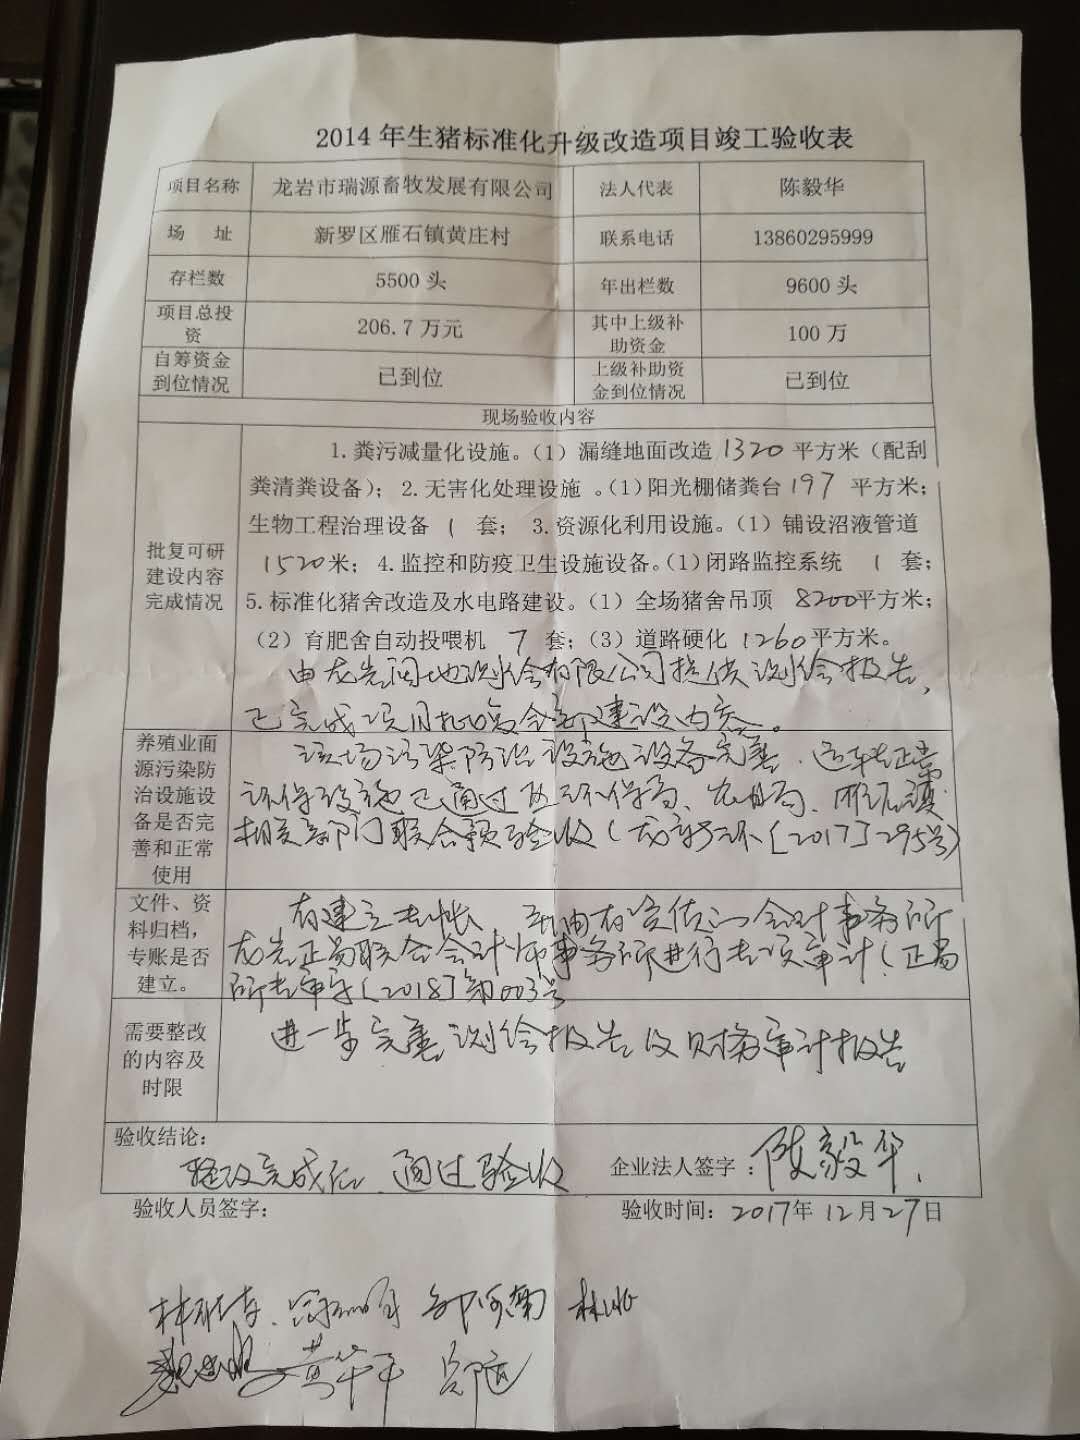 2014年生猪标准化升级改造项目竣工验收表
项目名称 龙岩市瑞源畜牧发展有限公司 法人代表 陈毅华
场 址 新罗区雁石镇黄庄村 联系电话 13860295999
存栏数 5500头 年出栏数 9600头
项目总投资 206.7万元 其中上级补助资金 100万
自筹资金到位情况 已到位 上级补助资金到位情况 已到位
现场验收内容
批复可研
建设内容
完成情况
1.粪污减量化设施。（1）漏缝地面改造1320平方米（配刮
粪清粪设备）；2.无害化处理设施 。（1）阳光棚储粪台197 平方米；
生物工程治理设备 1 套；3.资源化利用设施。（1）铺设沼液管道
1520米；4.监控和防疫卫生设施设备。（1）闭路监控系统 1 套；
5.标准化猪舍改造及水电路建设。（1）全场猪舍吊顶 8200平方米；
（2）育肥舍自动投喂机 7 套；（3）道路硬化 1260平方米。
由龙岩闽地测绘有限公司提供测绘报告，
已完成项目批复全部建设内容。
养殖业面
源污染防
治设施设
备是否完
善和正常
使用
该场污染防治设施设备完善、运转正常
环保设施已通过 环保局、农业局、雁石镇
相关部门联合预验收（龙新环[2017]295号）
文件、资
料归档，
专账是否
建立。
有建立专帐 并由有资质的会计事务所
龙岩正易联合会计师事务所进行专项审计（正易
所专审字[2018]第003号
需要整改
的内容及
时限
进一步完善测绘报告及财务审计报告
验收结论：
整改完成后，通过验收 企业法人签字：陈毅华
验收人员签字： 验收时间：2017年12月27日
黄华平